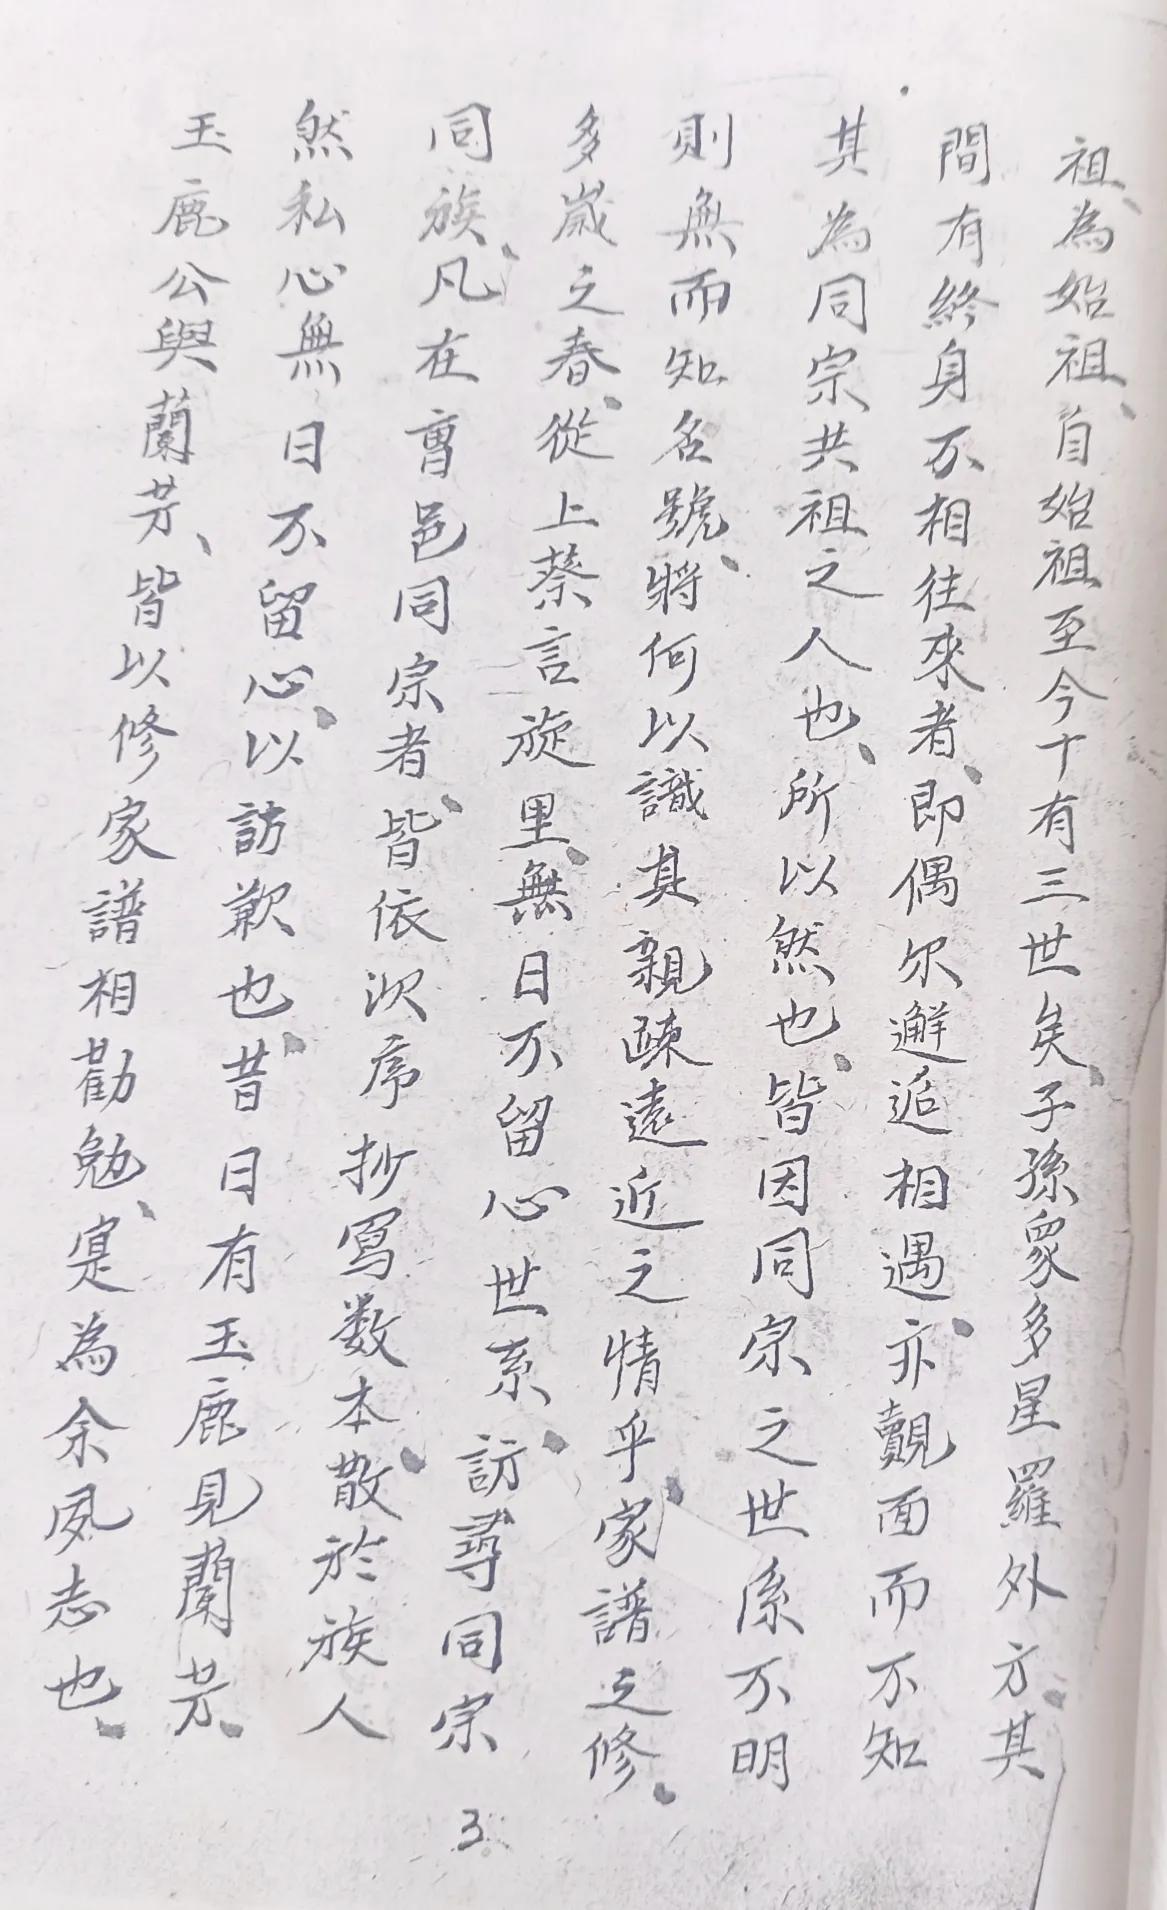 祖、為始祖、自始祖至今十有三世矣、子孫衆多星羅外方、其
間有終身不相往來者、即偶尔邂逅相遇、亦覿面而不知
其為同宗共祖之人也、所以然也、皆因同宗之世係不明
則無而知名號、將何以識其親疎遠近之情乎、家譜之修、
多歲之春、從上蔡言旋里、無日不留心世系、訪尋同宗
同族、凡在曺邑同宗者、皆依次序抄寫数本、散於族人
然私心無日不留心、以訪歉也、昔日有玉鹿見蘭芳、
玉鹿公與蘭芳、皆以修家譜相勸勉、寔為余夙志也、
3